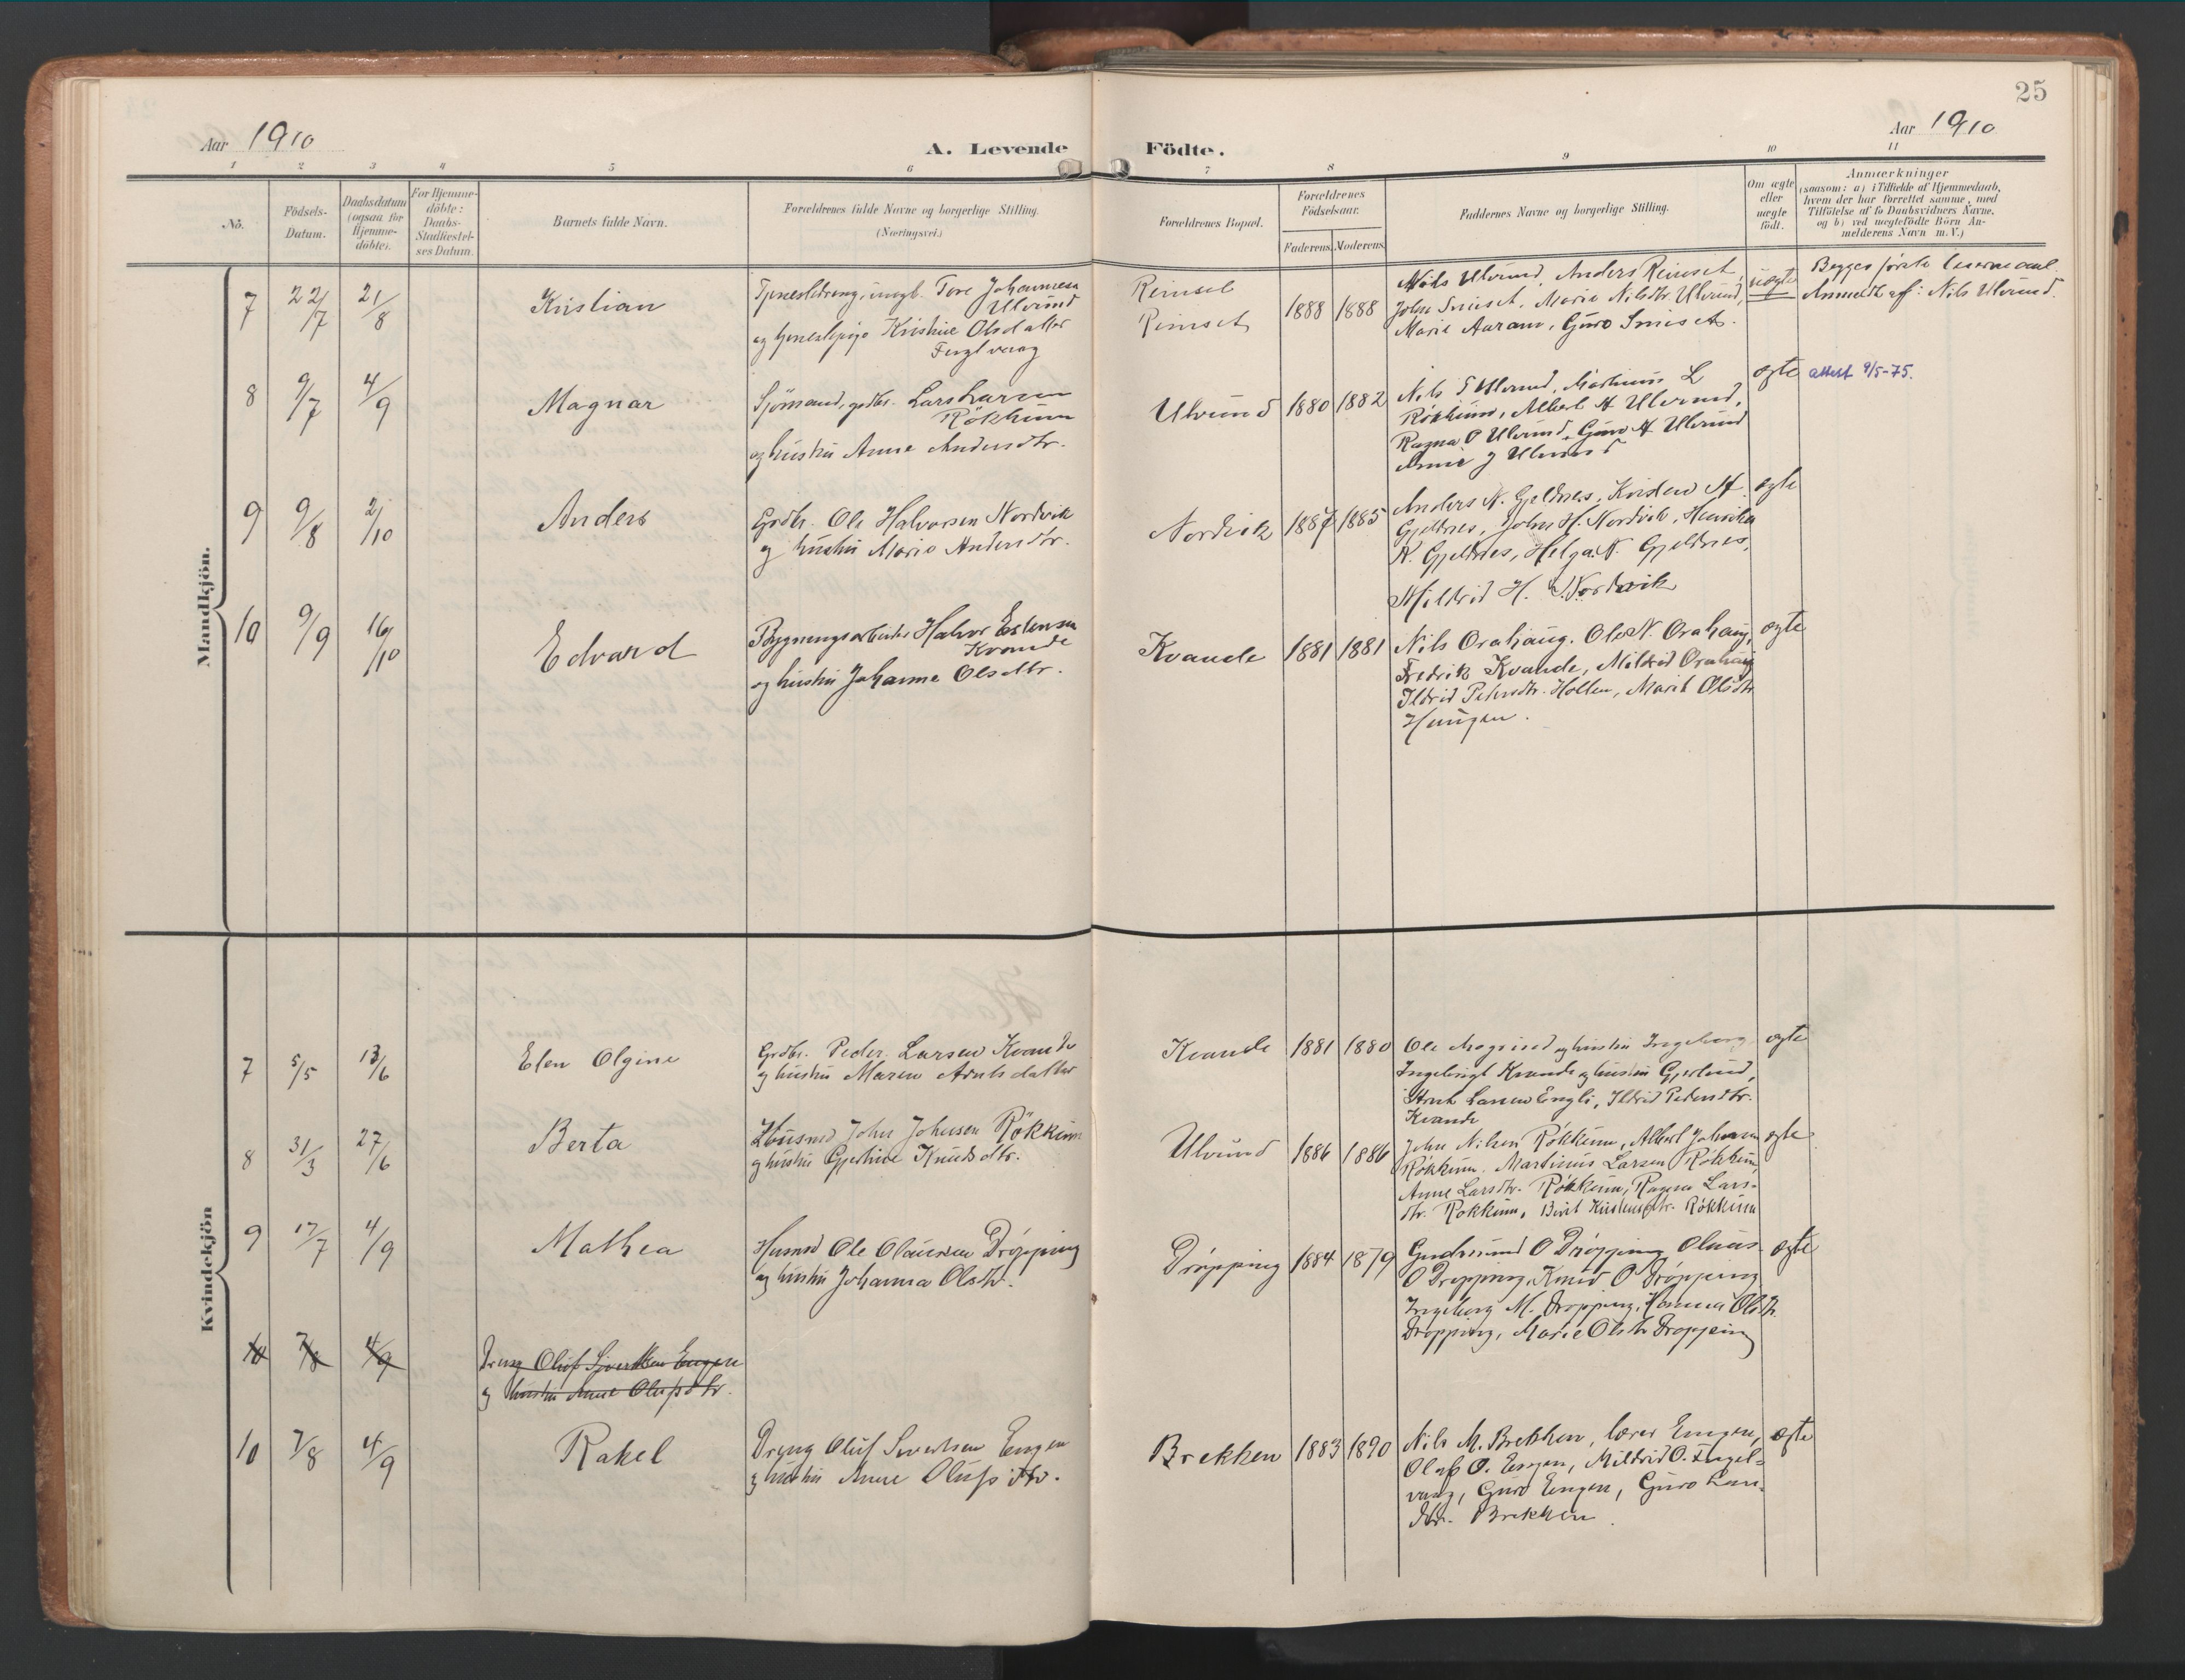 25
Aar 1910
A. Levende Födte.
Aar 1910
1 2 3 4 5 6 7 8 9 10 11
No.
Födsels-
Datum.
Daabsdatum
(ogsaa for
Hjemme-
döbte).
For Hjemme-
döbte:
Daabs-
Stadfæstel-
ses Datum.
Barnets fulde Navn.
Forældrenes fulde Navne og borgerlige Stilling.
(Næringsvei.)
Forældrenes Bopæl.
Forældrenes
Födselsaar.
Faderens. Moderens.
Faddernes Navne og borgerlige Stilling.
Om ægte
eller
uægte
födt.
Anmærkninger
(saasom: a) i Tilfælde af Hjemmedaab,
hvem der har forrettet samme, med
Tilföielse af to Daabsvidners Navne,
og b) ved uægtefödte Börn An-
melderens Navn m. V.)
Mandkjön.
7 22/7 21/8 Kristian
Tjenestedreng, ungk. Tore Johannesen
Ulvund
og tjenestepige Kristine Olsdatter
Reinset
Reinset
1888 1888
Nils Ulvund, Anders Reinset,
John Sniset, Marie Nilsdtr. Ulvund,
Marie Aaram, Guro Sniset.
uægte
Begges første leiermaal.
Anmeldt af: Nils Ulvund.
8 9/7 4/9 Magnar
Sjømand, gdbr. Lars Larsen
Røkkum
og hustru Anne Andersdtr.
Ulvund 1880 1882
Nils T Ulvund, Martinus L
Røkkum, Albert A Ulvund,
Ragna O Ulvund, Guro A Ulvund
J Ulvund
ægte
attest 9/5-75.
9 9/8 2/10 Anders
Grdbr. Ole Halvorsen Nordvik
og hustru Marie Andersdtr.
Nordvik 1887 1885
Anders N. Gjeldnes, Kristen A
Gjeldnes, John H. Nordvik, Henrikka
K. Gjeldnes, Helga N. Gjeldnes,
Mildrid H. Nordvik
ægte
10 9/9 16/10 Edvard
Bygningsarbeider Halvor Estensen
Kvande
og hustru Johanne Olsdtr.
Kvande 1881 1881
Nils Orahaug, Ole N. Orahaug,
Fredrik Kvande, Mildrid Orahaug
Ildrid Pedersdtr. Hollen, Marit Olsdtr
Haugen.
ægte
Kvindekjön
7 5/5 13/6 Elen Olgine
Grdbr. Peder Larsen Kvande
og hustru Maren Arntsdatter
Kvande 1881 1880
Ole Mogstad og hustru Ingeborg
Ingebrigt Kvande og hustru Gjertrud,
Arnt Larsen Engli, Ildrid Pedersdtr.
Kvande
ægte
8 31/3 27/6 Berta
Husmd John Johnsen Røkkum
og hustru Gjertine Knudsdtr.
Ulvund 1886 1886
John Nilsen Røkkum, Albert Johnsen
Røkkum, Martinus Larsen Røkkum
Anne Larsdtr. Røkkum, Ragna Lars-
dtr. Røkkum, Berit Kristensdtr. Røkkum
ægte
9 17/7 4/9 Mathea
Husmd Ole Olaussen Drøpping
og hustru Johanna Olsdtr.
Drøpping 1884 1879
Gudmund O Drøpping, Olaus
O Drøpping, Knud O Drøpping
Ingeborg M. Drøpping, Hanna Olsdtr.
Drøpping, Marie Olsdtr Drøpping
ægte
10 7/8 4/9
Dreng Oluf Sivertsen Engen
og hustru Anne Olufsdtr.
10 7/8 4/9 Rakel
Dreng Oluf Sivertsen Engen
og hustru Anne Olufsdtr.
Brekken 1883 1890
Nils M. Brekken, lærer Engen,
Olaf O. Engen, Mildrid O. Fugel-
vaag, Guro Engen, Guro Lars-
dtr. Brekken.
ægte